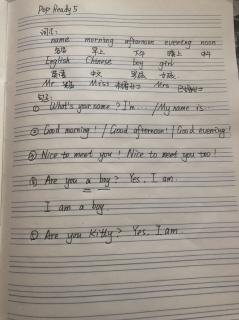 Pop Ready 5
词汇:
name morning afternoon evening noon
名字 早上 下午 晚上 中午
English Chinese boy girl
英语 中文 男孩 女孩
Mr Miss Mrs
句子:
① What's your name? I'm ... / My name is
② Good morning! / Good afternoon! / Good evening!
③ Nice to meet you! Nice to meet you too!
④ Are you a boy? Yes, I am.
I am a boy
⑤ Are you Kitty? Yes, I am.